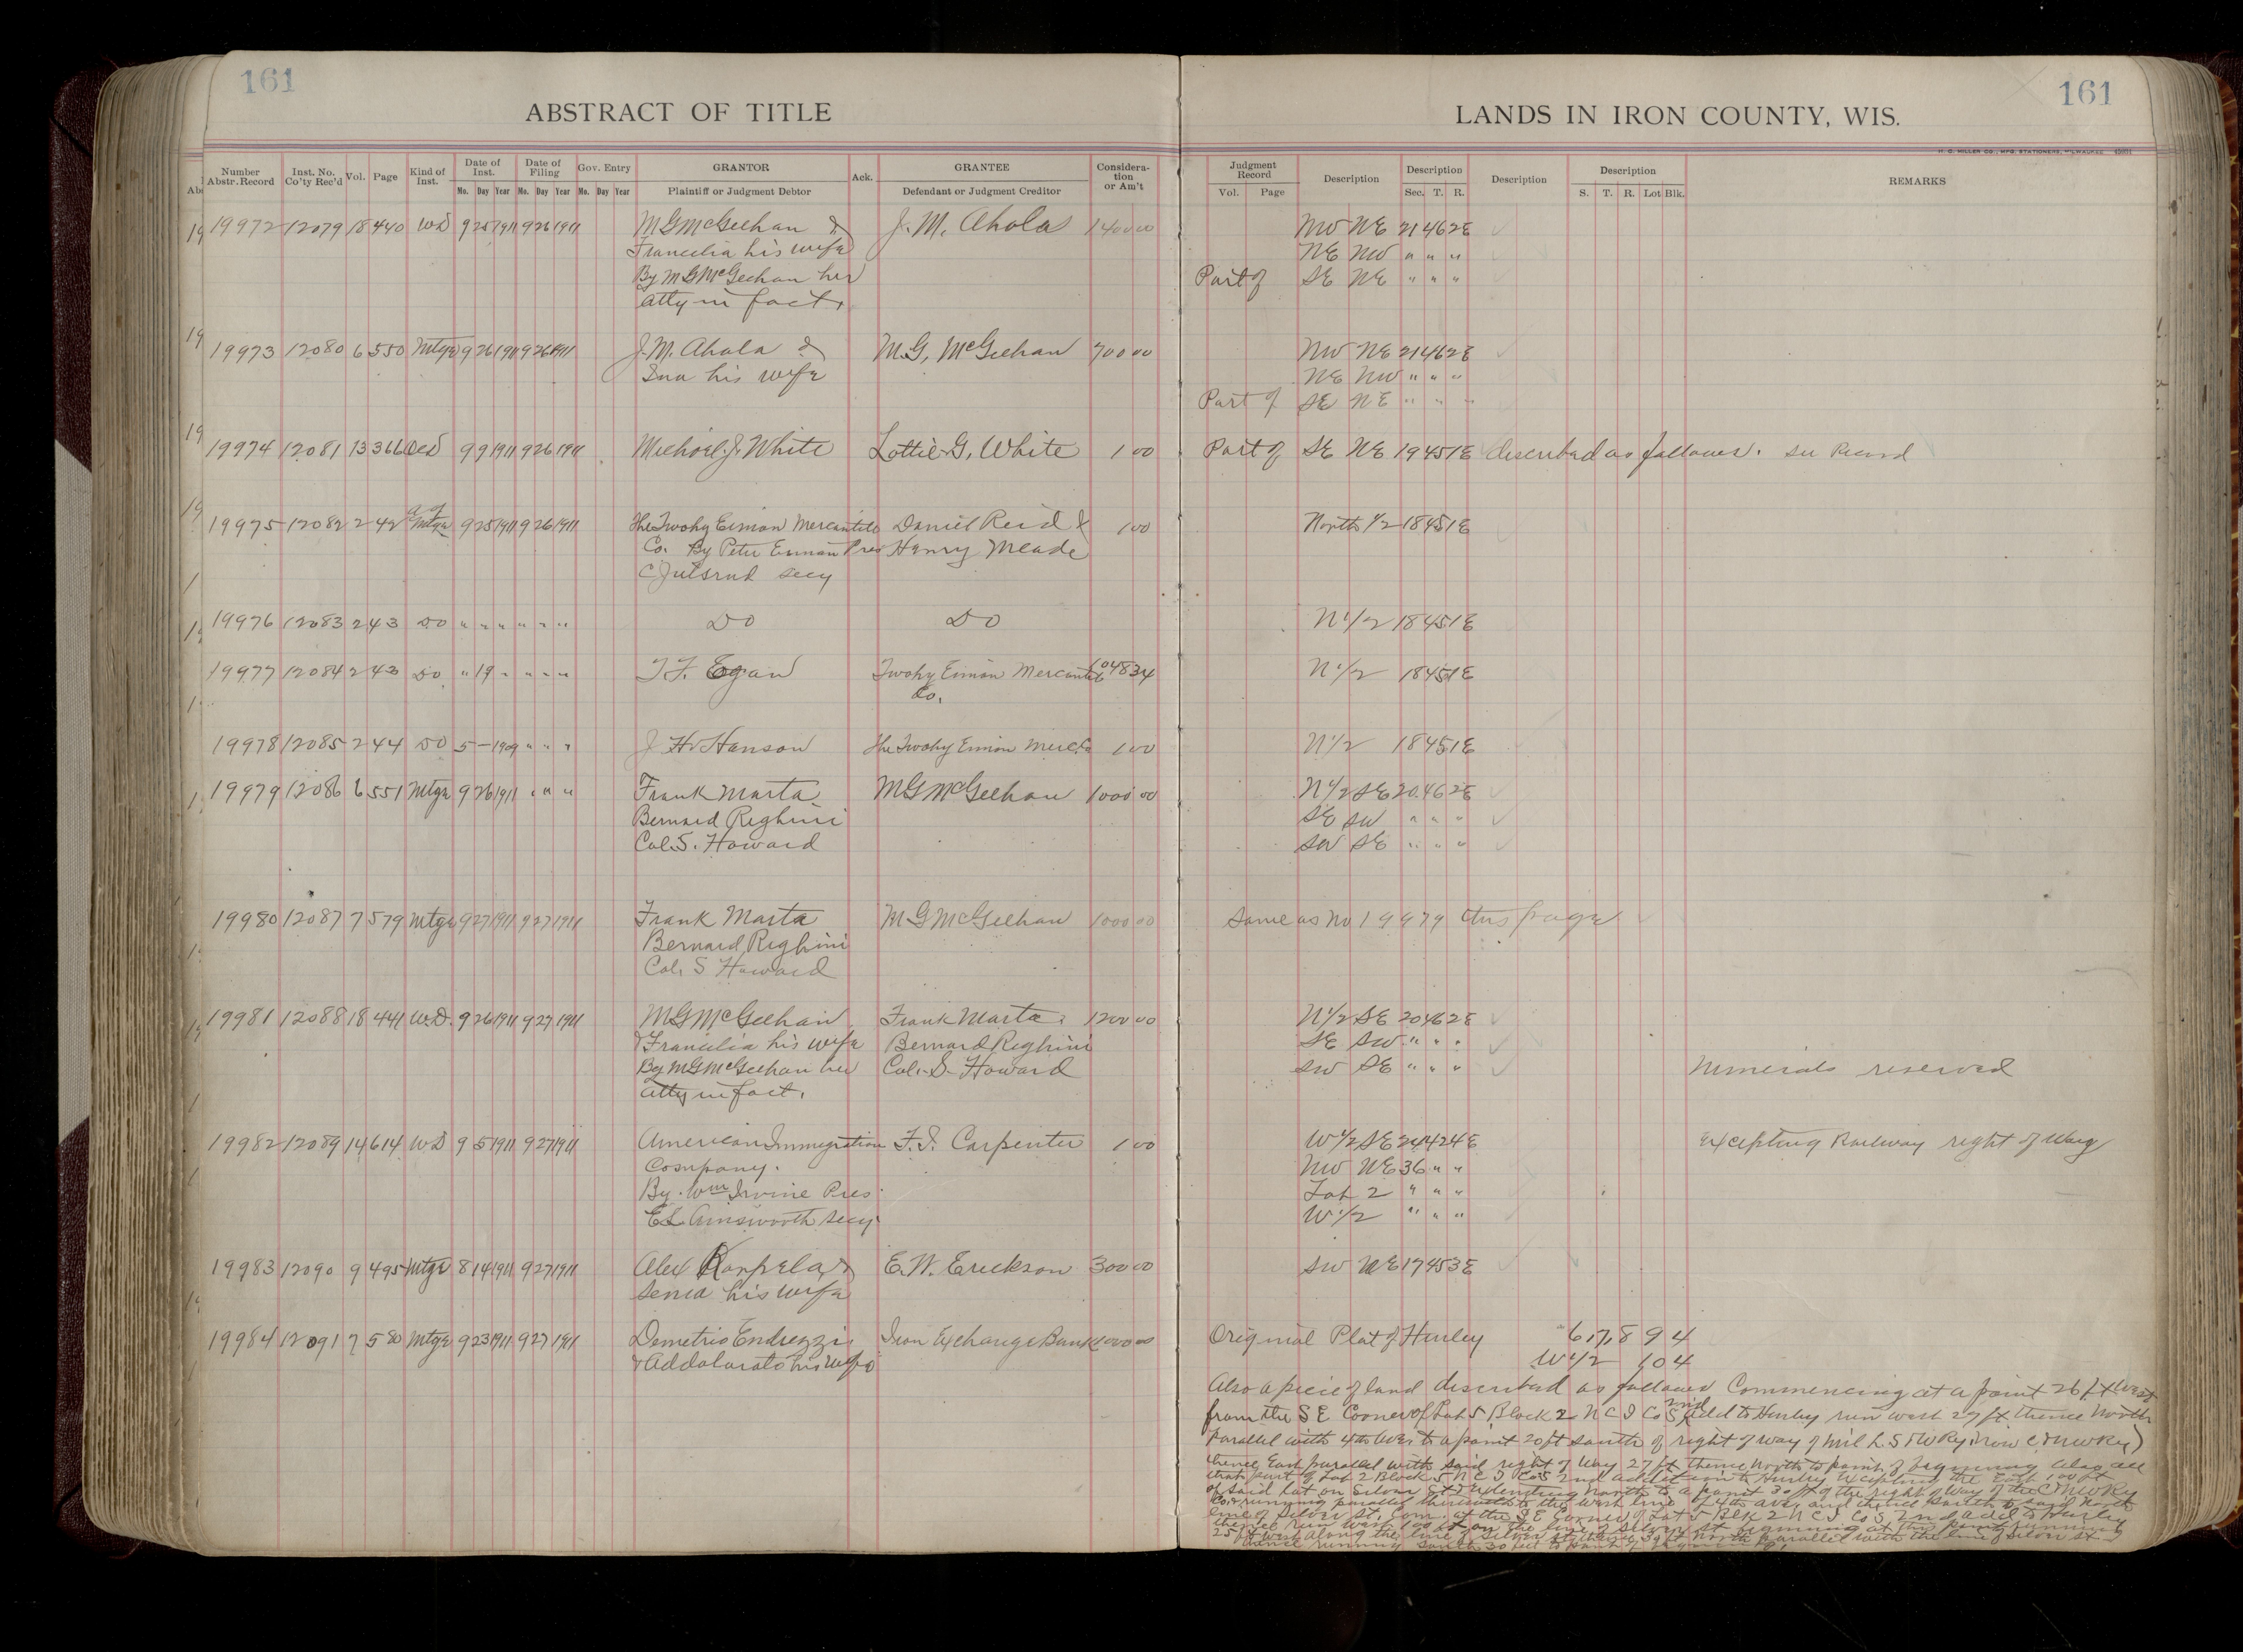 161
161
ABSTRACT OF TITLE
LANDS IN IRON COUNTY, WIS.
H. C. MILLER CO., MFG. STATIONERS, MILWAUKEE
Number Abstr. Record Inst. No. Co'ty Rec'd Vol. Page Kind of Inst. Date of Inst. Mo. Day Year Date of Filing Mo. Day Year Gov. Entry Mo. Day Year GRANTOR Plaintiff or Judgment Debtor Ack. GRANTEE Defendant or Judgment Creditor Considera-tion or Am't
Judgment Record Vol. Page Description Description Sec. T. R. Description Description S. T. R. Lot Blk. REMARKS
19972 12079 18 440 WD 9 25 1911 9 26 1911 M G McGeehan & J. M. Ahola 1400 00 NW NE 21 46 2E
Francelia his wife NE NW " " "
By M G McGeehan her Part of SE NE " " "
atty in fact.
19973 12080 6 550 Mtge 9 26 1911 9 26 1911 J. M. Ahola & M. G. McGeehan 700 00 NW NE 21 46 2E
Ina his wife NE NW " " "
Part of SE NE " " "
19974 12081 13 366 Deed 9 9 1911 9 26 1911 Michael J. White Lottie G. White 1 00 Part of SE NE 19 45 1E described as follows. see Record
19975 12082 2 42 a of Mtge 9 25 1911 9 26 1911 The Twohy Eimon Mercantile Daniel Reid & 1 00 North 1/2 18 45 1E
Co. By Peter Eimon Pres Henry Meade
secy
19976 12083 2 43 Do " " " " " " Do Do N 1/2 18 45 1E
19977 12084 2 43 Do " 19 " " " " T. F. Egan Twohy Eimon Mercantile 1048 34 N 1/2 18 45 1E
Co.
19978 12085 2 44 Do 5 - 1909 " " " J H Hanson The Twohy Eimon Merc Co 1 00 N 1/2 18 45 1E
19979 12086 6 551 Mtge 9 26 1911 " " " Frank Marta M G McGeehan 1000 00 N 1/2 SE 20 46 2E
Bernard Righini SE SW " " "
Cal. S. Howard SW SE " " "
19980 12087 7 579 Mtge 9 27 1911 9 27 1911 Frank Marta M G McGeehan 1000 00 Same as No 19979 this page
Bernard Righini
Cal. S Howard
19981 12088 18 441 W.D. 9 26 1911 9 27 1911 M G McGeehan Frank Marta 1200 00 N 1/2 SE 20 46 2E
& Francelia his wife Bernard Righini SE SW " " "
By M G McGeehan her Cal. S. Howard SW SE " " " Minerals reserved
atty in fact.
19982 12089 14 614 WD 9 5 1911 9 27 1911 American Immigration F. J. Carpenter 1 00 W 1/2 SE 24 42 4E Excepting Railway right of Way
Company. NW NE 36 " "
By Wm Irvine Pres. Lot 2 " " "
E L Ainsworth secy. W 1/2 " " "
19983 12090 9 495 Mtge 8 14 1911 9 27 1911 Alex Korpela & E. W. Erickson 300 00 SW NE 17 45 3E
Senia his wife
19984 12091 7 580 Mtge 9 23 1911 9 27 1911 Demetrio Endrezzi Iron Exchange Bank 1000 00 Original Plat of Hurley 6,7,8 9 4
& Addolorato his wife W 1/2 10 4
Also a piece of land described as follows Commencing at a point 26 ft West
from the S E Corner of Lot 5 Block 2 N C I Co's 2nd Add to Hurley run west 27 ft thence North
Parallel with 4th Ave to a point 20 ft south of right of way of Mil L S & W Ry (now C & NW Ry)
thence East parallel with said right of Way 27 ft thence North to point of beginning Also all
that part of Lot 2 Block 5 N C I Co's 2nd addition to Hurley Excepting the East 100 ft
of said Lot on Silver St & Extending North to a point 30 ft of the right of Way of the C & NW Ry
Co. & running parallel therewith to the West line of 4th Ave and thence South to said North
line of Silver St. Com. at the S E Corner of Lot 5 Blk 2 N C I Co's 2nd add to Hurley
thence run West 100 ft on the line of Silver St
25 ft west along the line of Silver St thence 30 ft North parallel with the line of Silver St
thence running South 30 feet to point of beginning